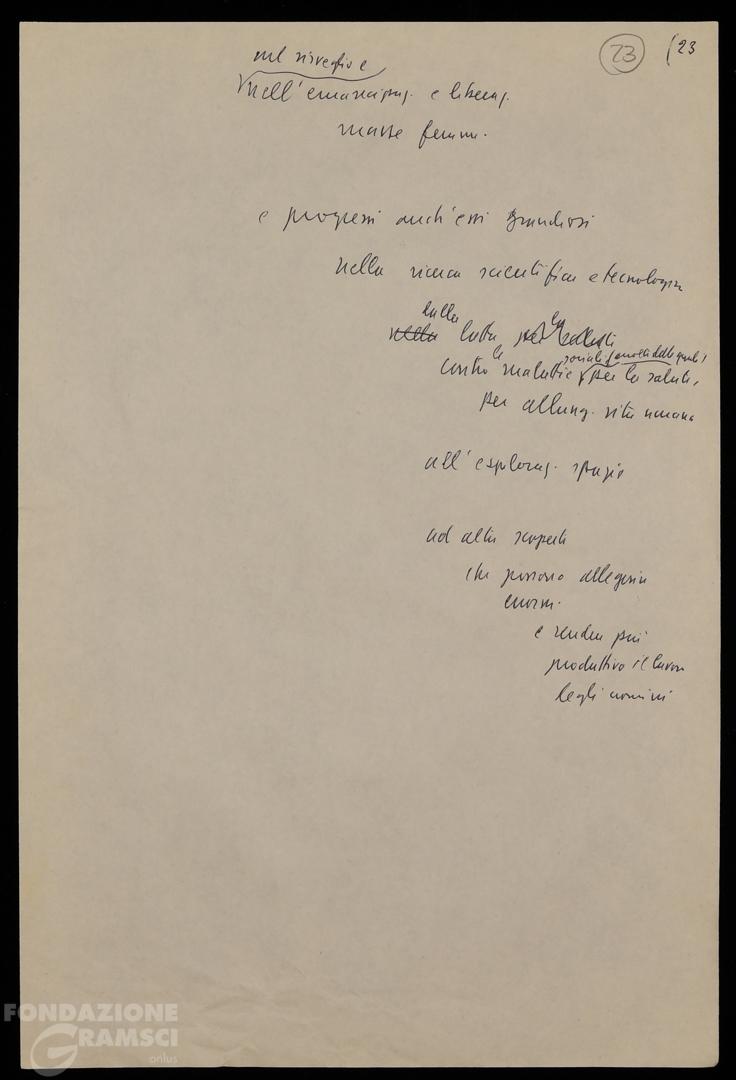 23 (23
nel risveglio e
nell'emancipaz. e liberaz.
masse femm.
e progressi anch'essi grandiosi
nella ricerca scientifica e tecnologica
dalla la
nella lotta per salute
le sociali
contro malattie per la salute,
per allung. vita umana
all'esploraz. spazio
ad altre scoperte
che possono alleggerire
enorm.
e rendere più
produttivo il lavoro
degli uomini
FONDAZIONE
GRAMSCI
onlus